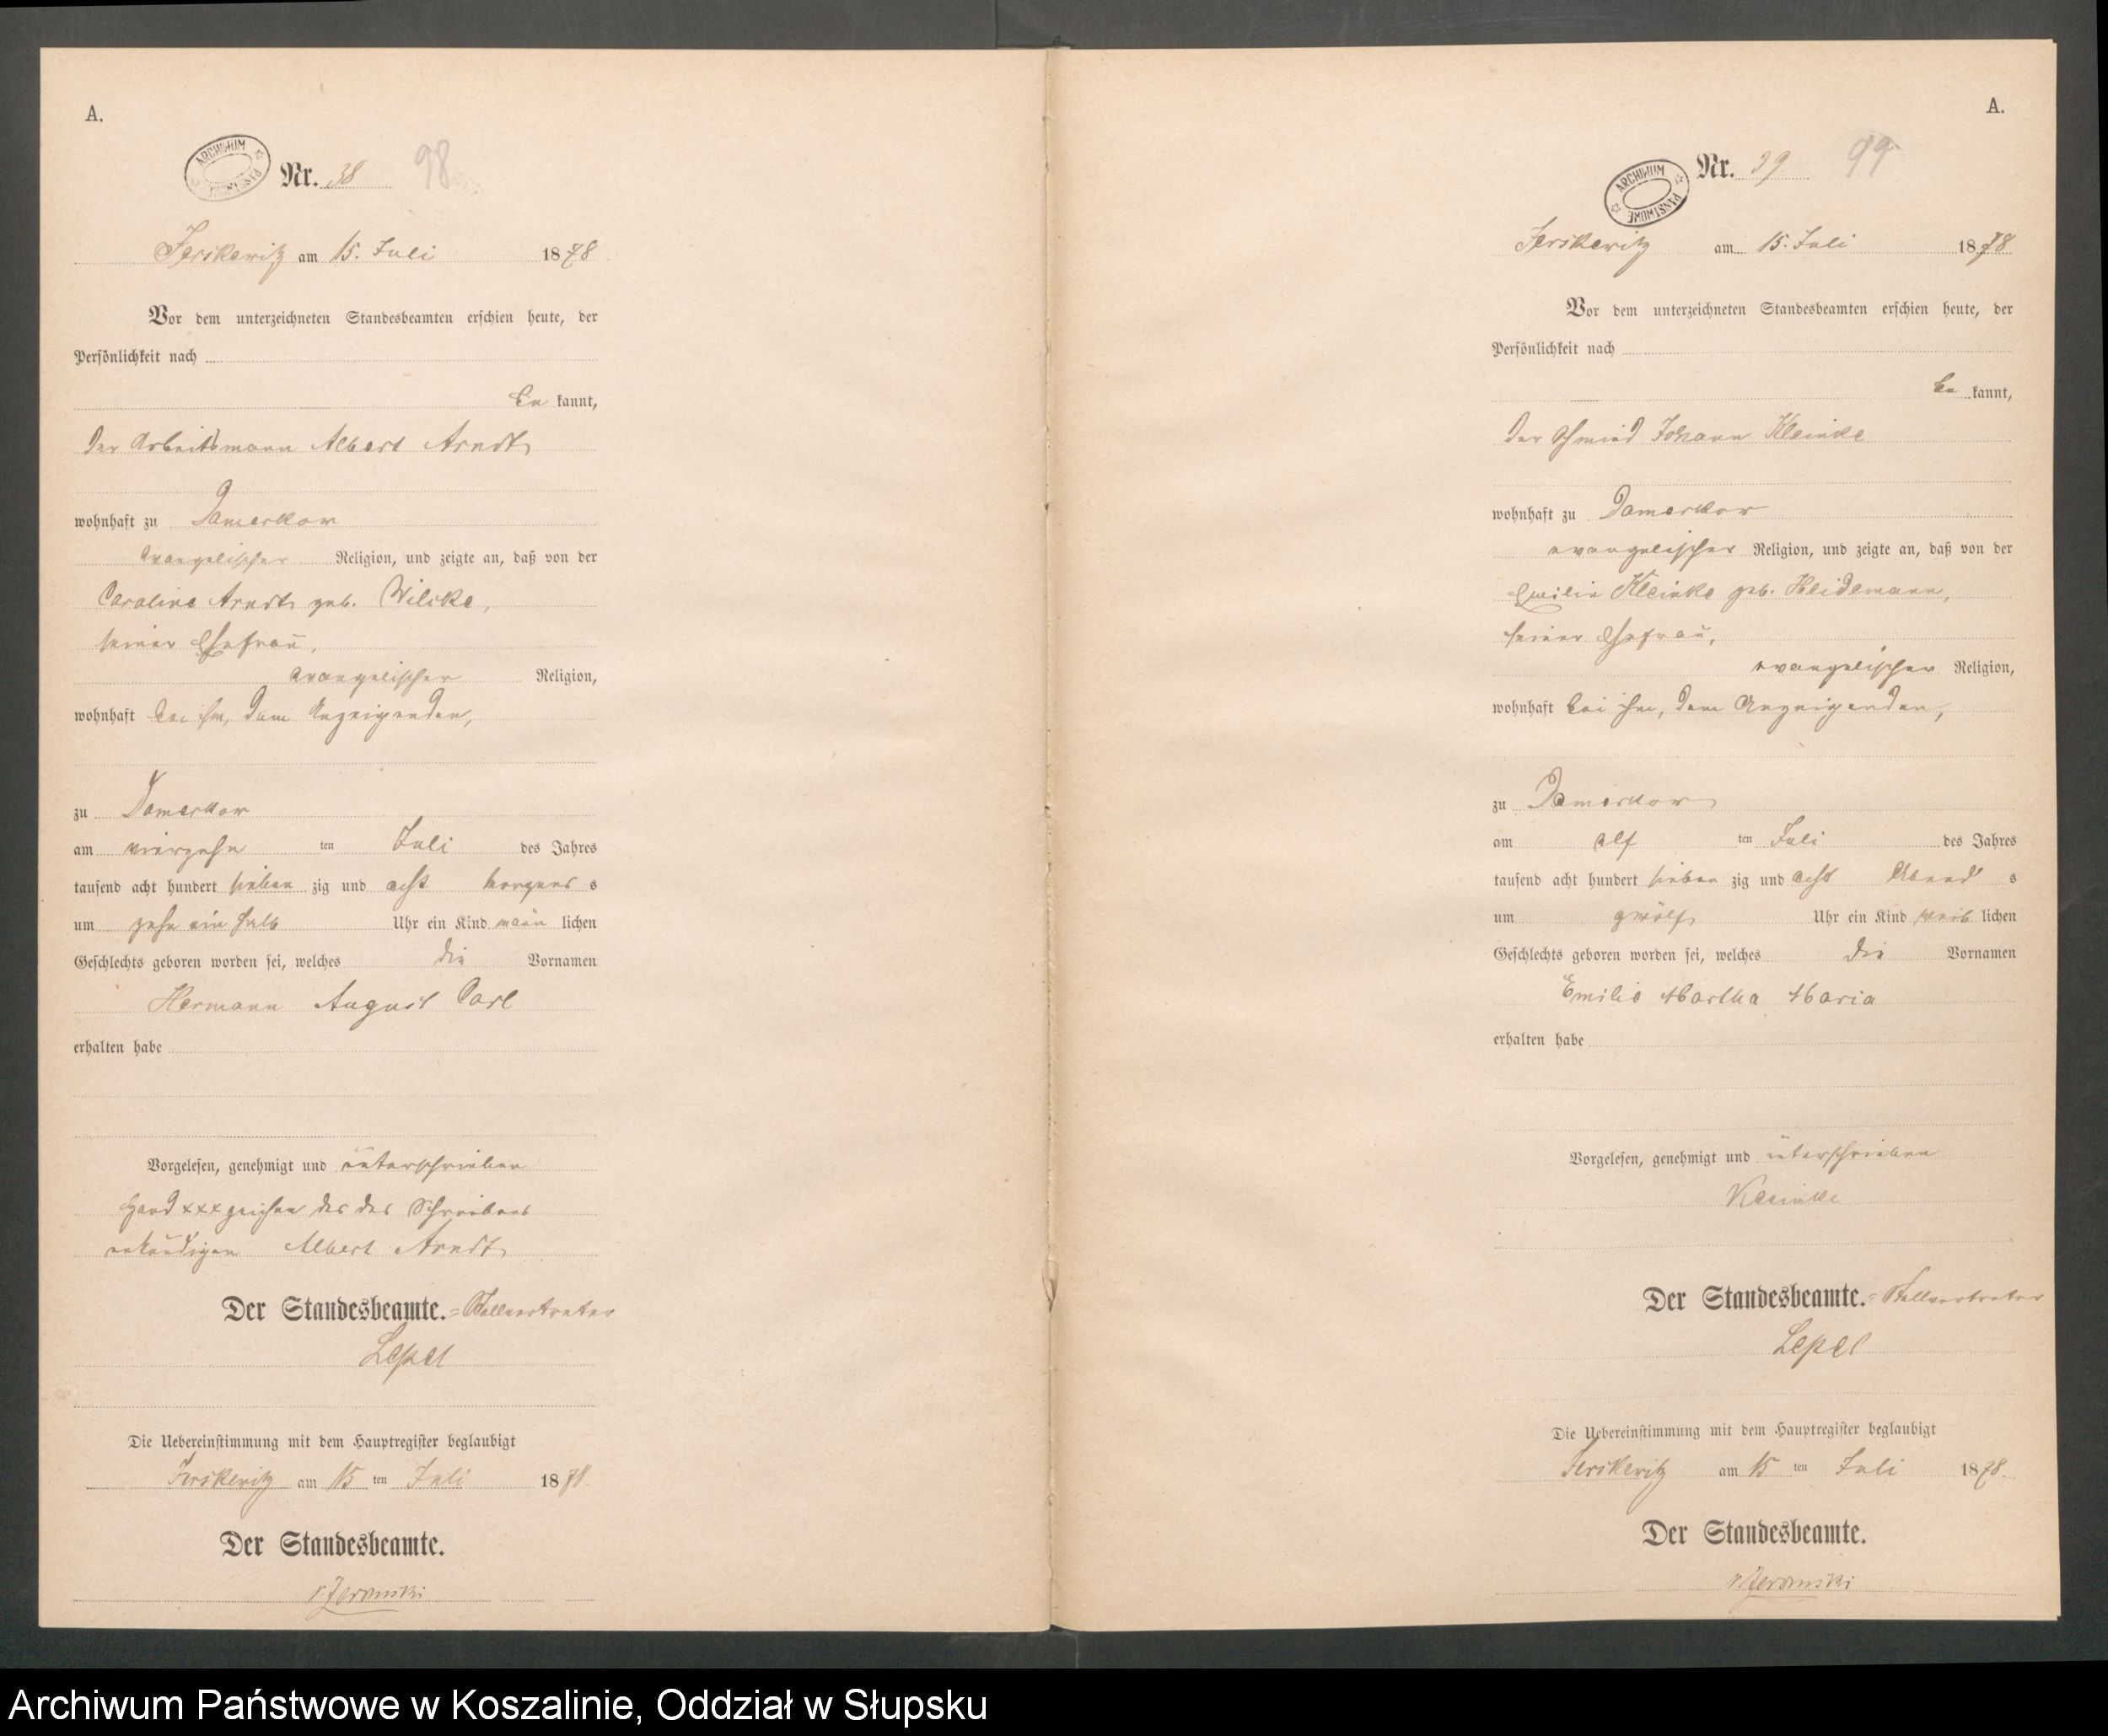 A.
ARCHIWUM PAŃSTWOWE
Nr. 38 98
Jerskewitz am 15. Juli 1878
Vor dem unterzeichneten Standesbeamten erschien heute, der
Persönlichkeit nach
be kannt,
der Arbeitsmann Albert Arndt
wohnhaft zu Damerkow
evangelischer Religion, und zeigte an, daß von der
Caroline Arndt geb. Wilcke,
seiner Ehefrau,
evangelischer Religion,
wohnhaft bei ihm, dem Anzeigenden,
zu Damerkow
am vierzehn ten Juli des Jahres
tausend acht hundert sieben zig und acht Morgens s
um zehn ein halb Uhr ein Kind männ lichen
Geschlechts geboren worden sei, welches die Vornamen
Hermann August Carl
erhalten habe
Vorgelesen, genehmigt und unterschrieben
Hand xxx zeichen des des Schreibens
unkundigen Albert Arndt
Der Standesbeamte.=Stellvertreter
Lepel
Die Uebereinstimmung mit dem Hauptregister beglaubigt
Jerskewitz am 15 ten Juli 1878.
Der Standesbeamte.
v Jeromski
A.
ARCHIWUM PAŃSTWOWE
Nr. 39 99
Jerskewitz am 15. Juli 1878
Vor dem unterzeichneten Standesbeamten erschien heute, der
Persönlichkeit nach
be kannt,
der Schmied Johann Kleinke
wohnhaft zu Damerkow
evangelischer Religion, und zeigte an, daß von der
Emilie Kleinke geb. Heidemann,
seiner Ehefrau,
evangelischer Religion,
wohnhaft bei ihm, dem Anzeigenden,
zu Damerkow
am elf ten Juli des Jahres
tausend acht hundert sieben zig und acht Abend s
um zwölf Uhr ein Kind weib lichen
Geschlechts geboren worden sei, welches die Vornamen
Emilie Martha Maria
erhalten habe
Vorgelesen, genehmigt und unterschrieben
Kleinke
Der Standesbeamte.=Stellvertreter
Lepel
Die Uebereinstimmung mit dem Hauptregister beglaubigt
Jerskewitz am 15 ten Juli 1878.
Der Standesbeamte.
v Jeromski
Archiwum Państwowe w Koszalinie, Oddział w Słupsku